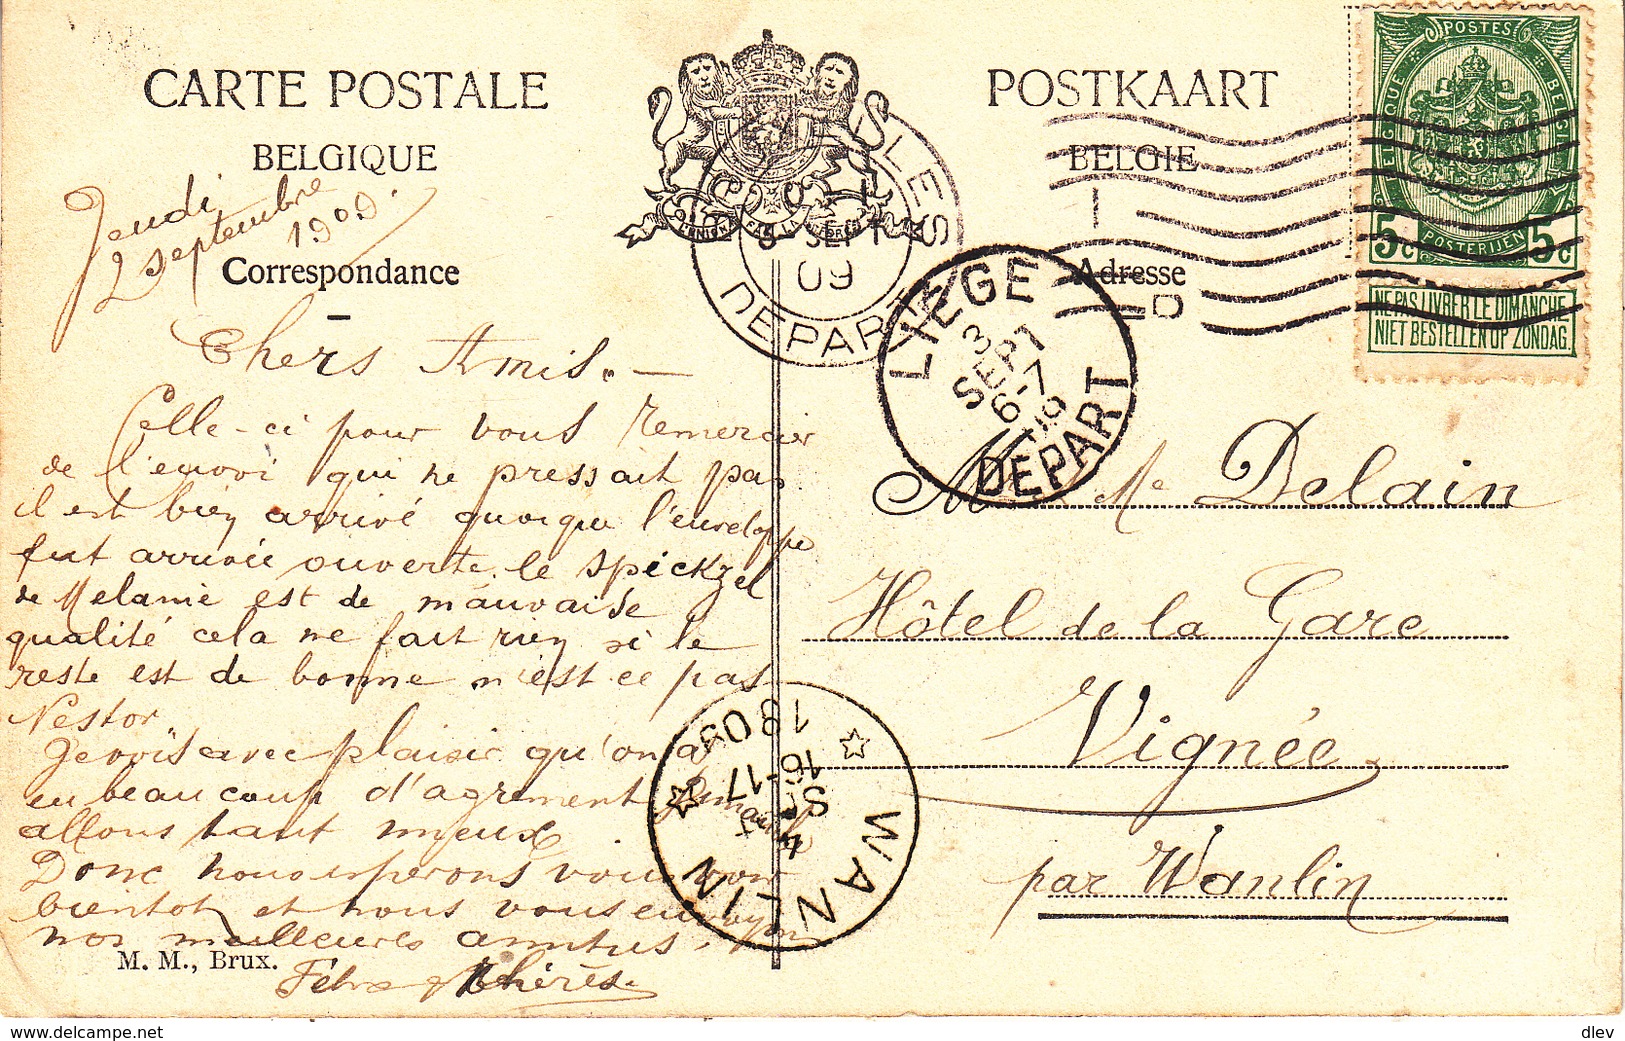 CARTE POSTALE
POSTKAART
BELGIQUE
BELGIE
Correspondance
Adresse
POSTES
BELGIQUE
BELGIË
5c POSTERIJEN 5c
NE PAS LIVRER LE DIMANCHE
NIET BESTELLEN OP ZONDAG.
LES
3 SEPT
09
DEPART
LIEGE
3
SEPT
6-7
09
DEPART
Jeudi
2 septembre
1909.
Chers Amis. —
Celle-ci pour vous remercier
de l'envoi qui ne pressait pas
il est bien arrivé quoique l'enveloppe
fut arrivée ouverte. le spickzel
de Melanie est de mauvaise
qualité cela ne fait rien si le
reste est de bonne n'est ce pas
Nestor.
Je vois avec plaisir qu'on a
eu beaucoup d'agrement
allons tant mieux
Donc nous esperons vous voir
bientot et nous vous envoyon
nos meilleures amitiés.
Félix & Thérès.
M Me Delain
Hôtel de la Gare
Vignée
par Wanlin
WANLIN
4 SEPT
16-17
1909
M. M., Brux.
https://www.delcampe.net
dlev